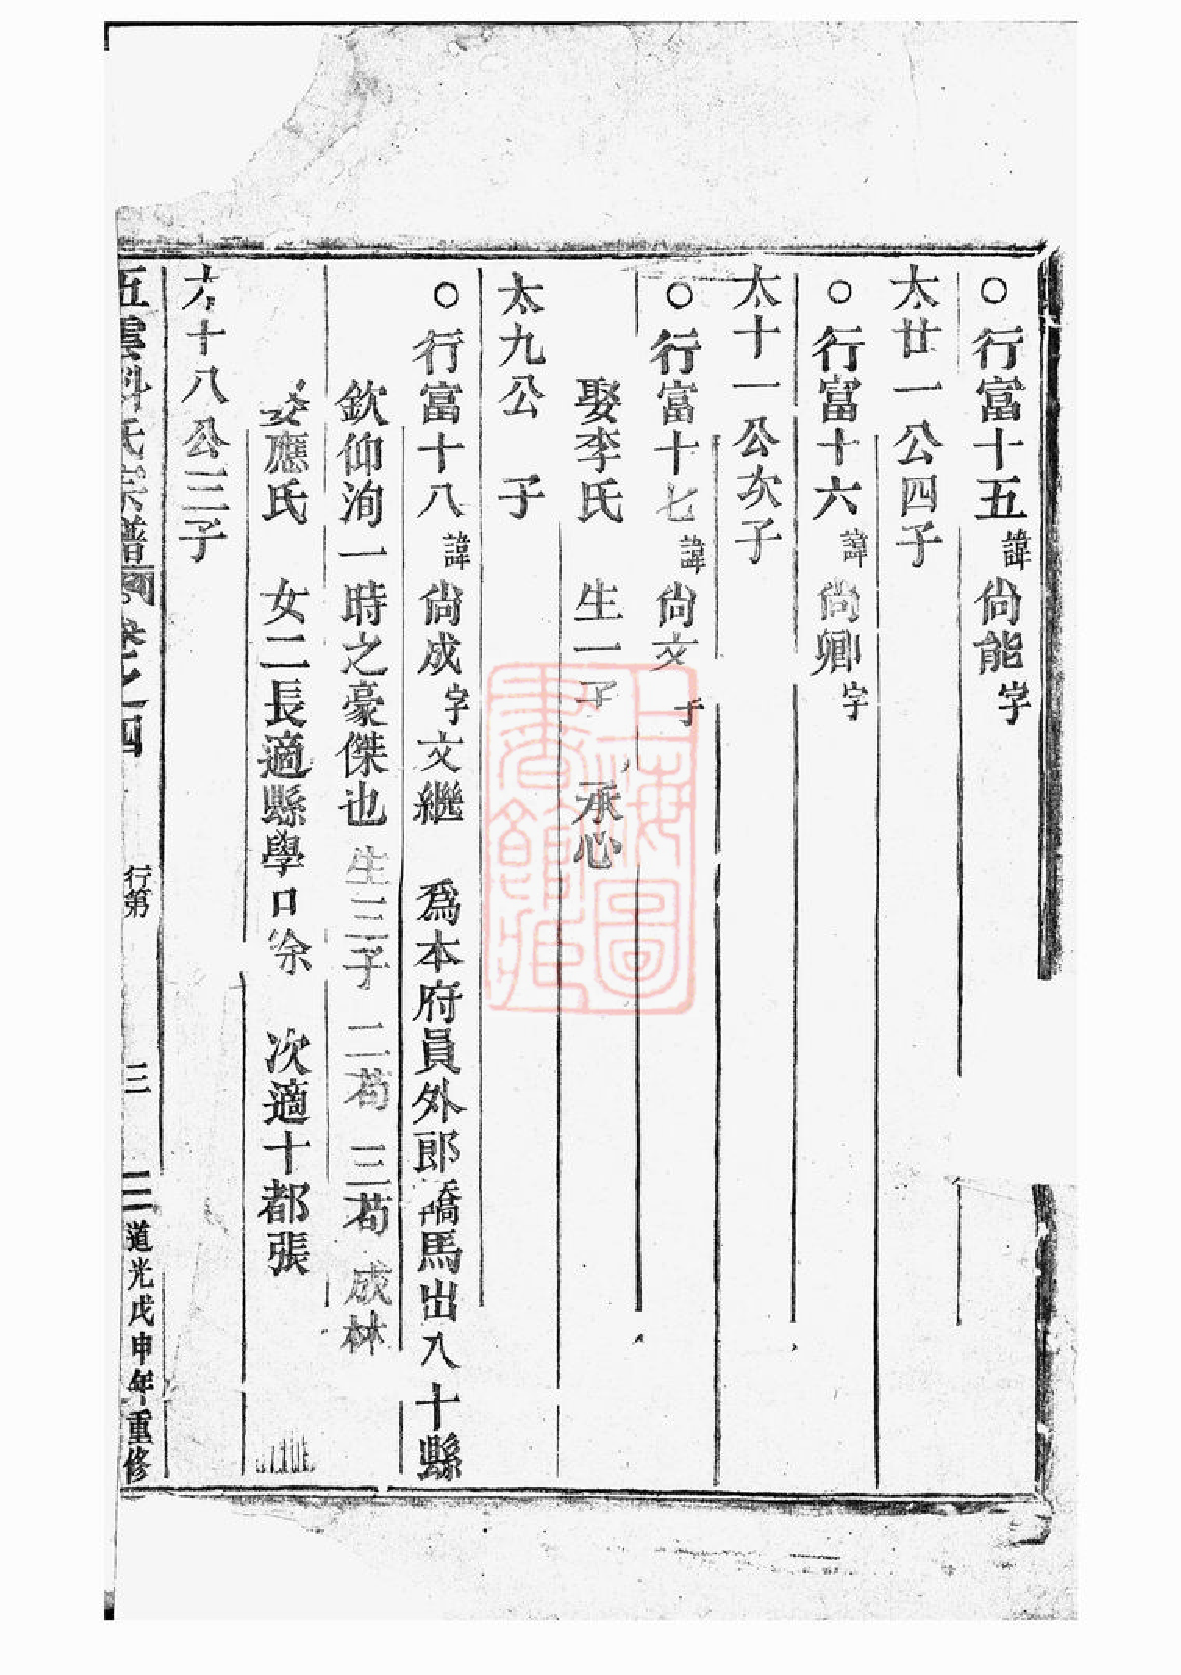 ○行富十五諱尙能字
太廿一公四子
○行富十六諱尙卿字
太十一公次子
○行富十七諱尙文字
娶李氏 生一子 承心
太九公 子
○行富十八諱尙成字文繼 爲本府員外郎驕馬出入十縣
欽仰洵一時之豪傑也 生三子 二荀 三荀 成林
娶應氏 女二長適縣學口徐 次適十都張
太十八公三子
五雲 氏宗譜 卷之四 行第 三 道光戊申年重修
上海圖書館藏